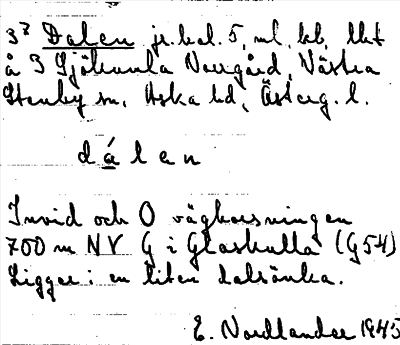 3² Dalen jr. bal. 5, ml, bb, lht
å 3 Sjökumla Norrgård, Västra
Stenby sn, Aska hd, Österg. l.
dálen
Invid och O vägkorsningen
700 m NV G i Glaskulla (G54)
Ligger i en liten dalsänka.
E. Nordlander 1945